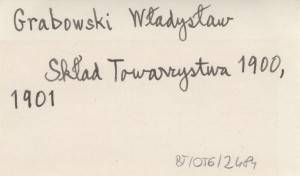 Grabowski Władysław
Skład Towarzystwa 1900,
1901
BJ/OTG/2484